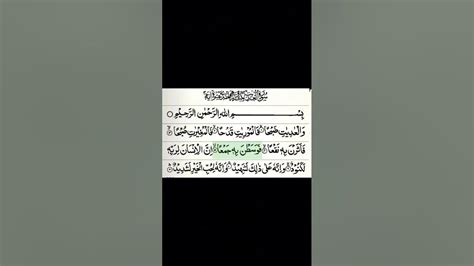 سُوْرَةُ
بِسْمِ اللهِ الرَّحْمٰنِ الرَّحِيْمِ
وَالْعٰدِيٰتِ ضَبْحًا ۝ فَالْمُوْرِيٰتِ قَدْحًا ۝ فَالْمُغِيْرٰتِ صُبْحًا ۝
فَاَثَرْنَ بِهٖ نَقْعًا ۝ فَوَسَطْنَ بِهٖ جَمْعًا ۝ اِنَّ الْاِنْسَانَ لِرَبِّهٖ
لَكَنُوْدٌ ۝ وَاِنَّهٗ عَلٰى ذٰلِكَ لَشَهِيْدٌ ۝ وَاِنَّهٗ لِحُبِّ الْخَيْرِ لَشَدِيْدٌ ۝